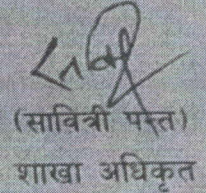 (सावित्री पन्त)
शाखा अधिकृत